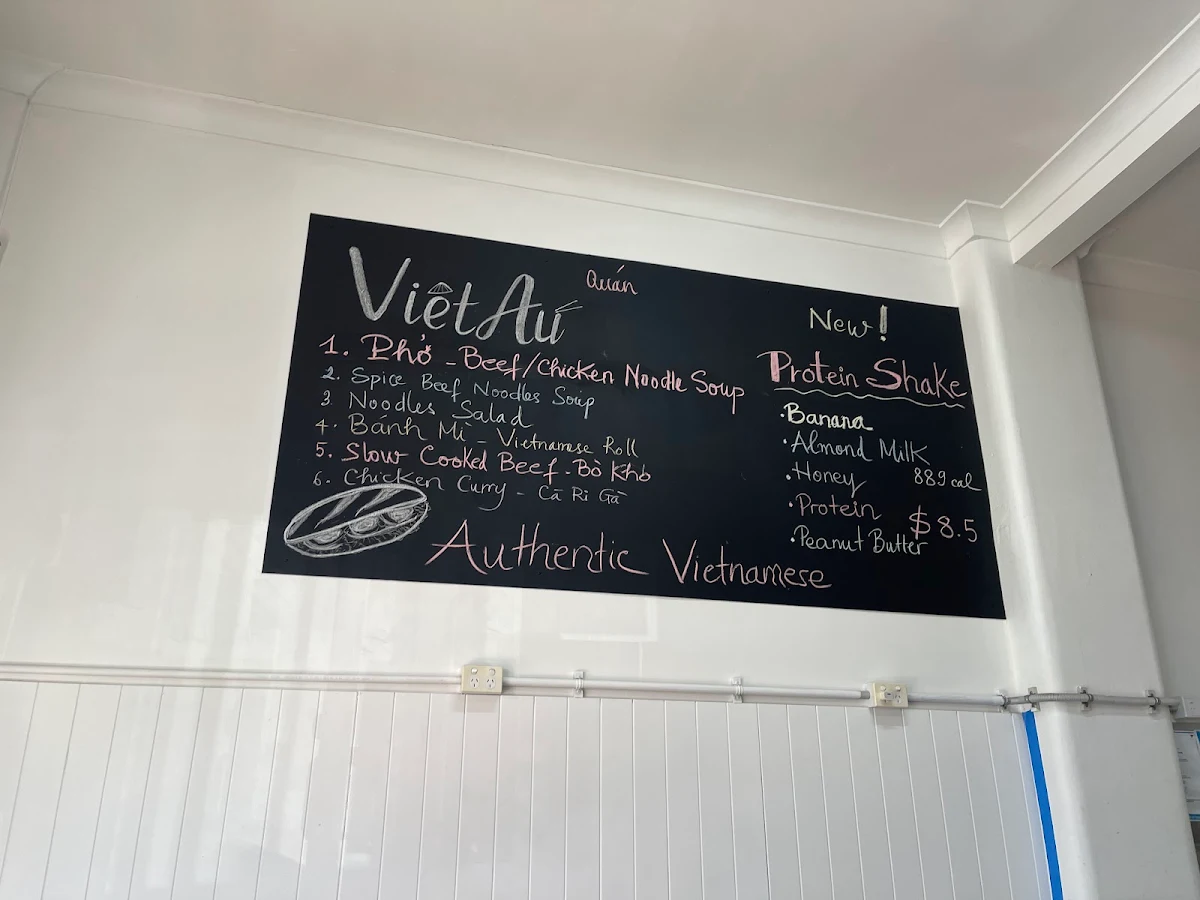 Quán
Việt Aú
1. Phở - Beef/Chicken Noodle Soup
2. Spice Beef Noodles Soup
3. Noodles Salad
4. Bánh Mì - Vietnamese Roll
5. Slow Cooked Beef - Bò Khò
6. Chicken Curry - Cà Ri Gà
Authentic Vietnamese
New!
Protein Shake
• Banana
• Almond Milk
• Honey 889 cal
• Protein
$8.5
• Peanut Butter